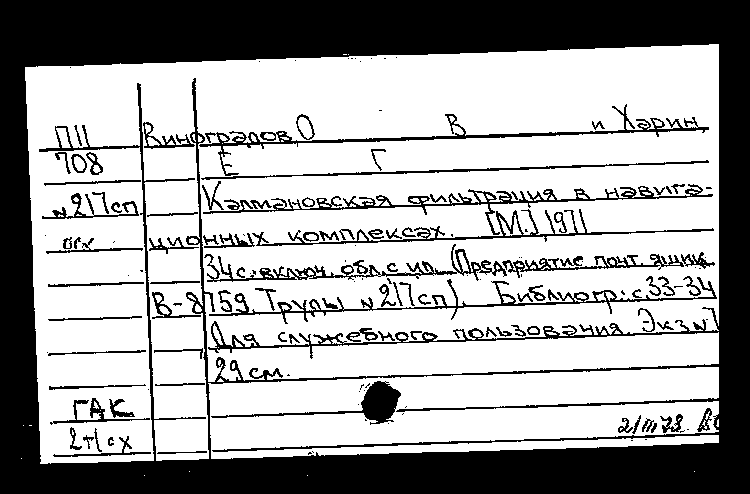 П11 Виноградов, О В и Харин,
708 Е Г
№217сп Калмановская фильтрация в навига-
ционных комплексах. [М.], 1971
34 с. включ. обл. с ил. (Предприятие почт. ящик
В-8759. Труды №217сп). Библиогр: с.33-34
Для служебного пользования. Экз №1
29 см.
ГАК
2/III 73.